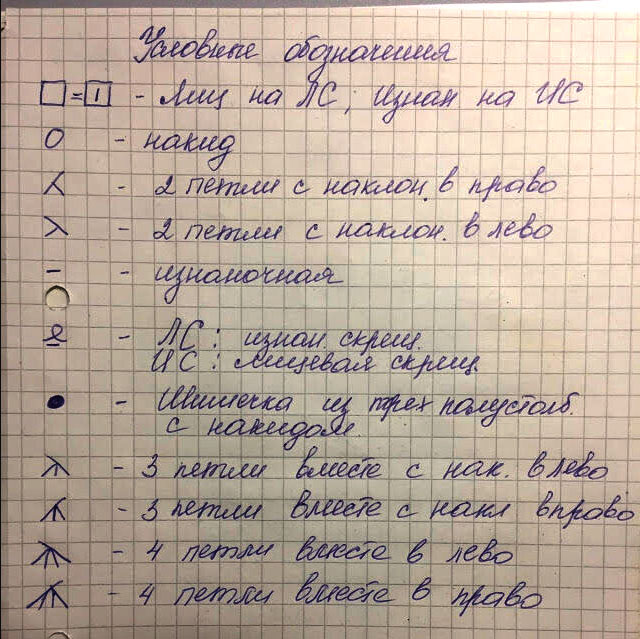 Условные обозначения
□ = I - Лиц на ЛС; Изнан на ИС
O - накид
⋌ - 2 петли с наклон. в право
⋋ - 2 петли с наклон. в лево
– - изнаночная
- ЛС: изнан. скрещ.
ИС: лицевая скрещ.
● - Шишечка из трех полустолб.
с накидом.
- 3 петли вместе с нак. в лево
- 3 петли вместе с накл вправо
- 4 петли вместе в лево
- 4 петли вместе в право